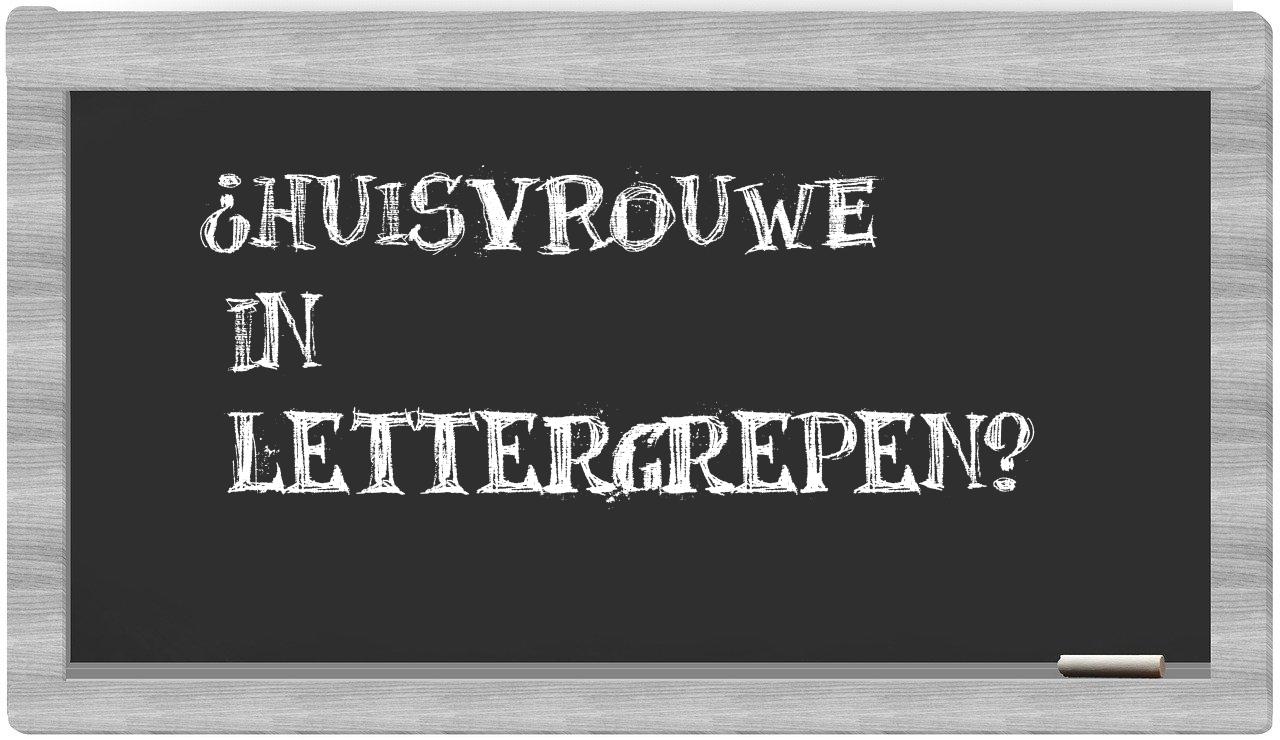 ¿HUISVROUWE
IN
LETTERGREPEN?